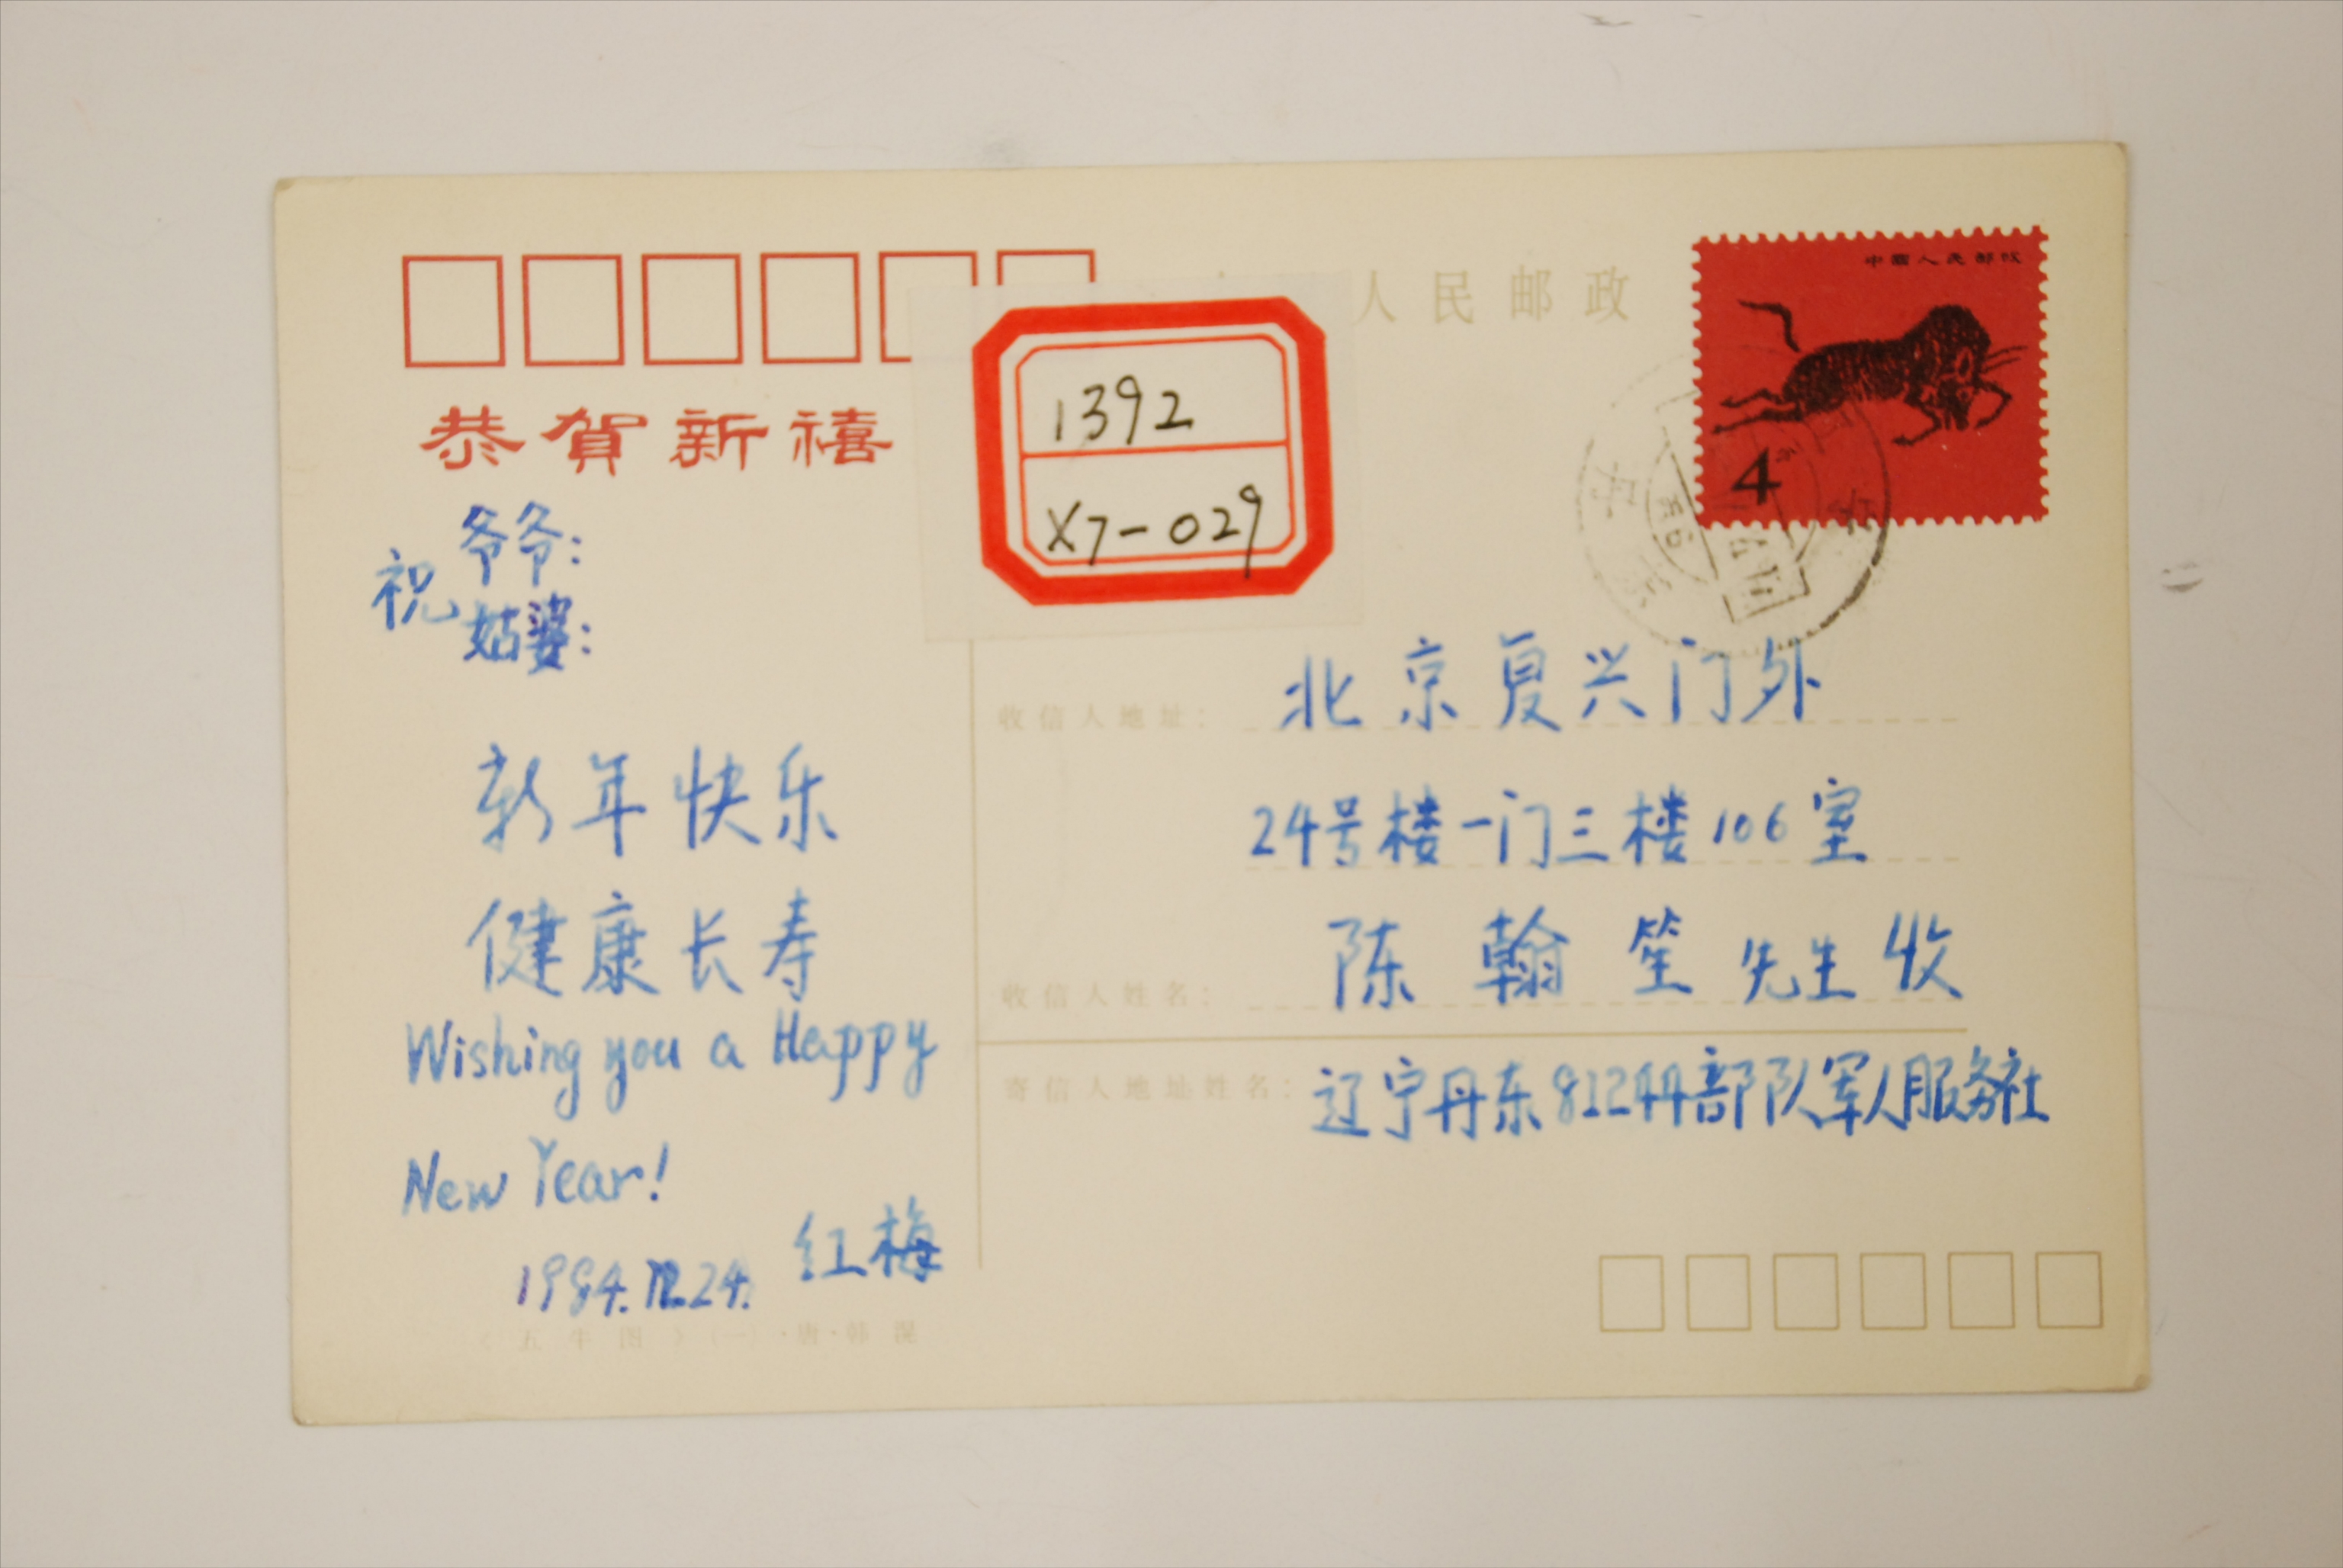 人民邮政
中国人民邮政
4分
恭賀新禧
1392
X7-029
祝爷爷:
姑婆:
新年快乐
健康长寿
Wishing you a Happy
New Year!
红梅
1984.12.24.
《五牛图》(一)·唐·韩滉
收信人地址: 北京复兴门外
24号楼一门三楼106室
收信人姓名: 陈翰笙先生收
寄信人地址姓名: 辽宁丹东81244部队军人服务社